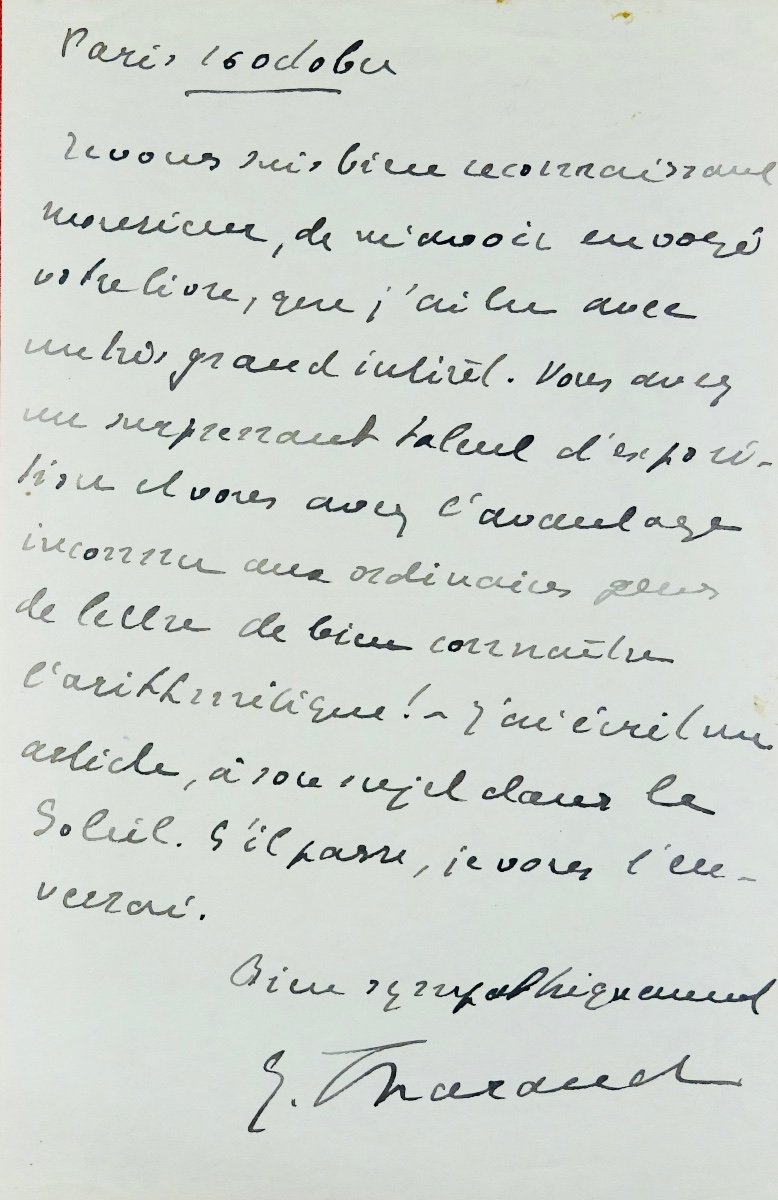 Paris 16 octobre
Je vous suis bien reconnaissant
monsieur, de m'avoir envoyé
votre livre, que j'ai lu avec
un très grand intérêt. Vous avez
un surprenant talent d'exposi-
tion et vous avez l'avantage
inconnu aux ordinaires gens
de lettre de bien connaître
l'arithmétique ! - J'ai écrit un
article, à son sujet dans le
Soleil. S'il passe, je vous l'en-
verrai.
Bien sympathiquement
J. Tharaud